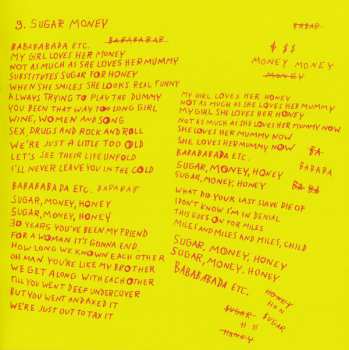 9. SUGAR MONEY
BABABABAR
BABABABADA ETC.
MY GIRL LOVES HER MONEY
NOT AS MUCH AS SHE LOVES HER MUMMY
SUBSTITUTES SUGAR FOR HONEY
WHEN SHE SMILES SHE LOOKS REAL FUNNY
ALWAYS TRYING TO PLAY THE DUMMY
YOU BEEN THAT WAY TOO LONG GIRL
WINE, WOMEN AND SONG
SEX, DRUGS AND ROCK AND ROLL
WE'RE JUST A LITTLE TOO OLD
LET'S SEE THEIR LIFE UNFOLD
I'LL NEVER LEAVE YOU IN THE COLD
BABABABADA ETC. BABABAR
SUGAR, MONEY, HONEY
SUGAR, MONEY, HONEY
30 YEARS YOU'VE BEEN MY FRIEND
FOR A WOMAN IT'S GONNA END
HOW LONG WE KNOWN EACH OTHER
OH MAN YOU'RE LIKE MY BROTHER
WE GET ALONG WITH EACH OTHER
TILL YOU WENT DEEP UNDERCOVER
BUT YOU WENT AND AXED IT
WE'RE JUST OUT TO TAX IT
BABAR
$ $$
MONEY MONEY
MONEY
MY GIRL LOVES HER HONEY
NOT AS MUCH AS SHE LOVES HER MUMMY
MY GIRL SHE LOVES HER HONEY
NOT AS MUCH AS SHE LOVES HER MUMMY NOW
SHE LOVES HER MUMMY NOW
SHE LOVES HER MUMMY NOW BA
BABABABADA ETC. BABABA
SUGAR, MONEY, HONEY
SUGAR, MONEY, HONEY BA BA
WHAT DID YOUR LAST SLAVE DIE OF
I DON'T KNOW I'M IN DENIAL
THIS GOES ON FOR MILES
MILES AND MILES AND MILES, CHILD
SUGAR, MONEY, HONEY
SUGAR, MONEY, HONEY
BABABABADA ETC. HONEY
HON
SUGAR SUGAR
HONEY